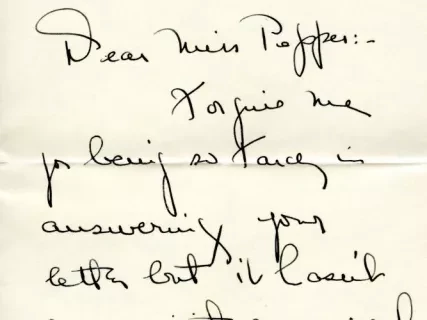 Dear Miss Pepper:-
Forgive me
for being so tardy in
answering your
letter but it hasn't